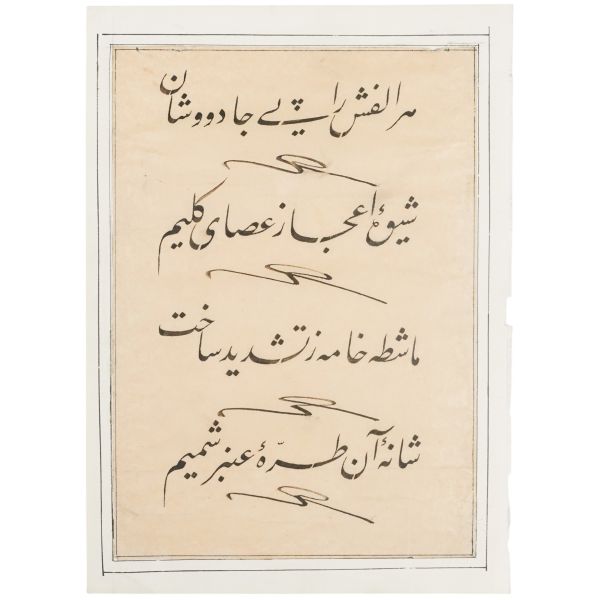 هر الفش را پی جادووشان
شیوهٔ اعجاز عصای کلیم
ماشطه خامه ز تشدید ساخت
شانهٔ آن طرّهٔ عنبر شمیم